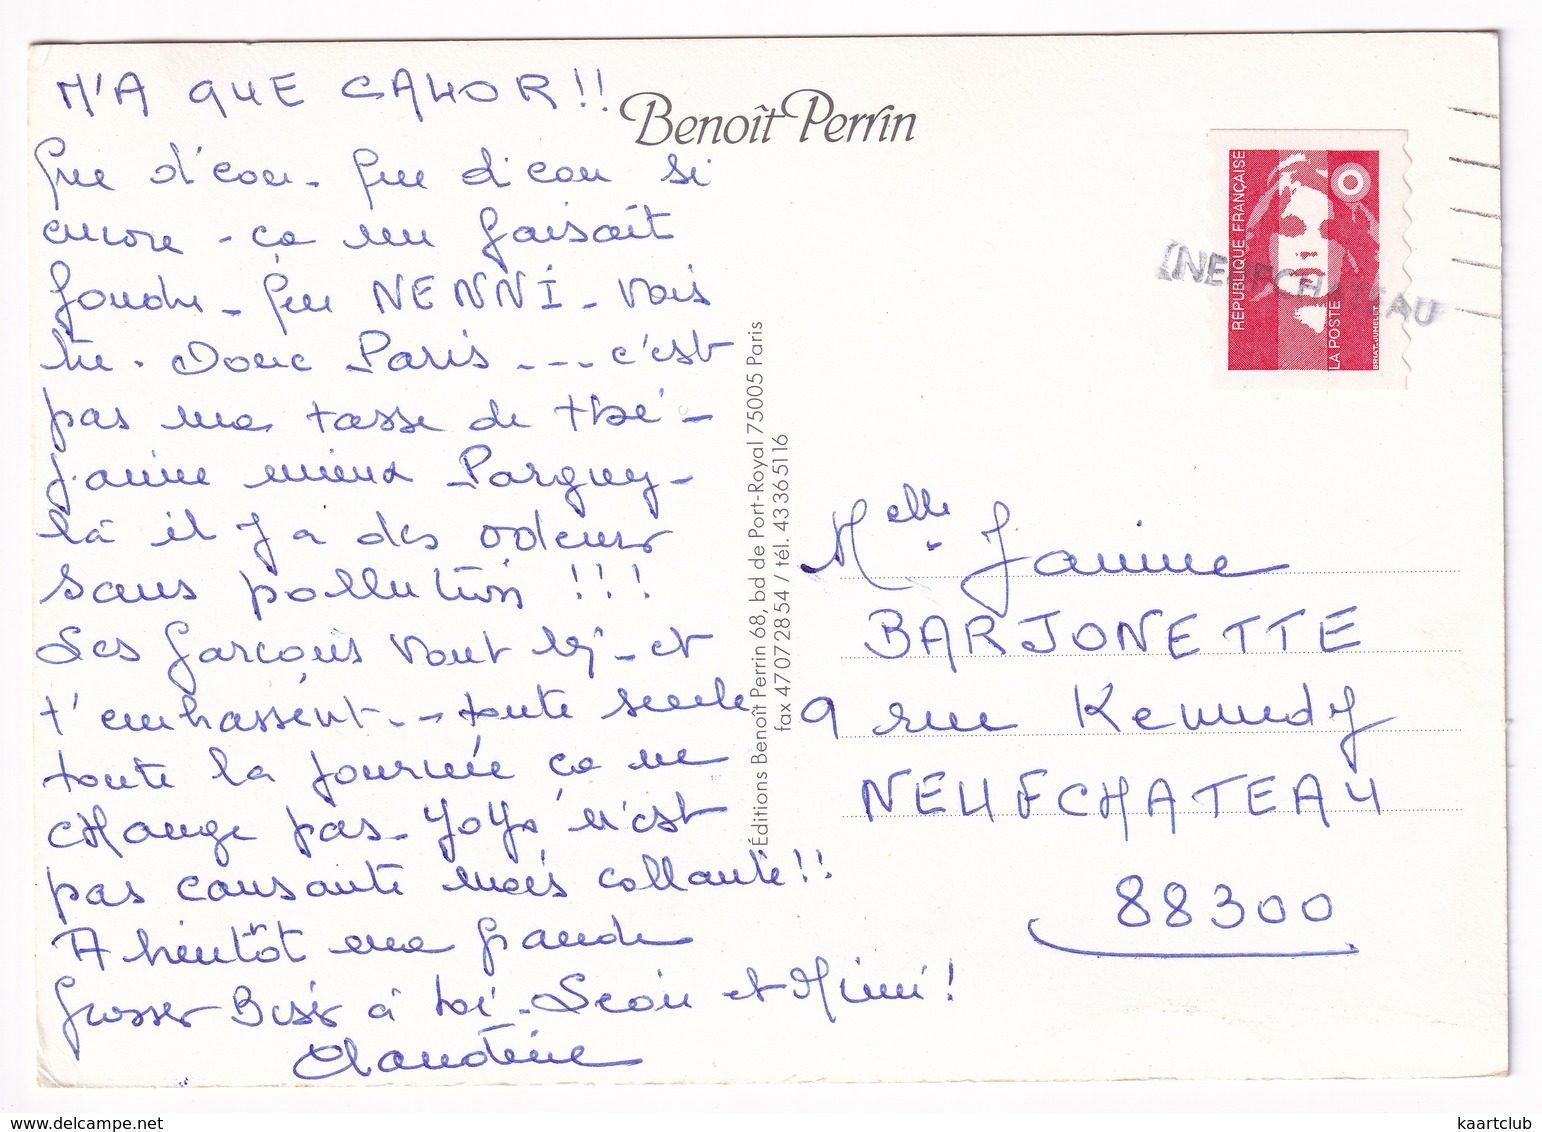 M'A QUE CALHOR!!
Benoît Perrin
Que d'eau. Que d'eau si
encore - ça me faisait
foudre - Que NENNI - Vais
te. Donc Paris --- c'est
pas ma tasse de thé -
J'aime mieux Parguey -
là il y a des odeurs
sans pollution !!!
Les garçons vont bj - et
t'embrassent -- toute seule
toute la journée ça ne
change pas - Yoyo n'est
pas causante mais collante!!
A bientôt ma grande
Grosses Bises à toi - Léon et Mimi!
Claudine
Éditions Benoît Perrin 68, bd de Port-Royal 75005 Paris
fax 47072854 / tél. 43365116
REPUBLIQUE FRANÇAISE
LA POSTE
BRIAT-JUMELET
NEUFCHATEAU
Melle Janine
BARJONETTE
9 rue Kennedy
NEUFCHATEAU
88300
www.delcampe.net
kaartclub